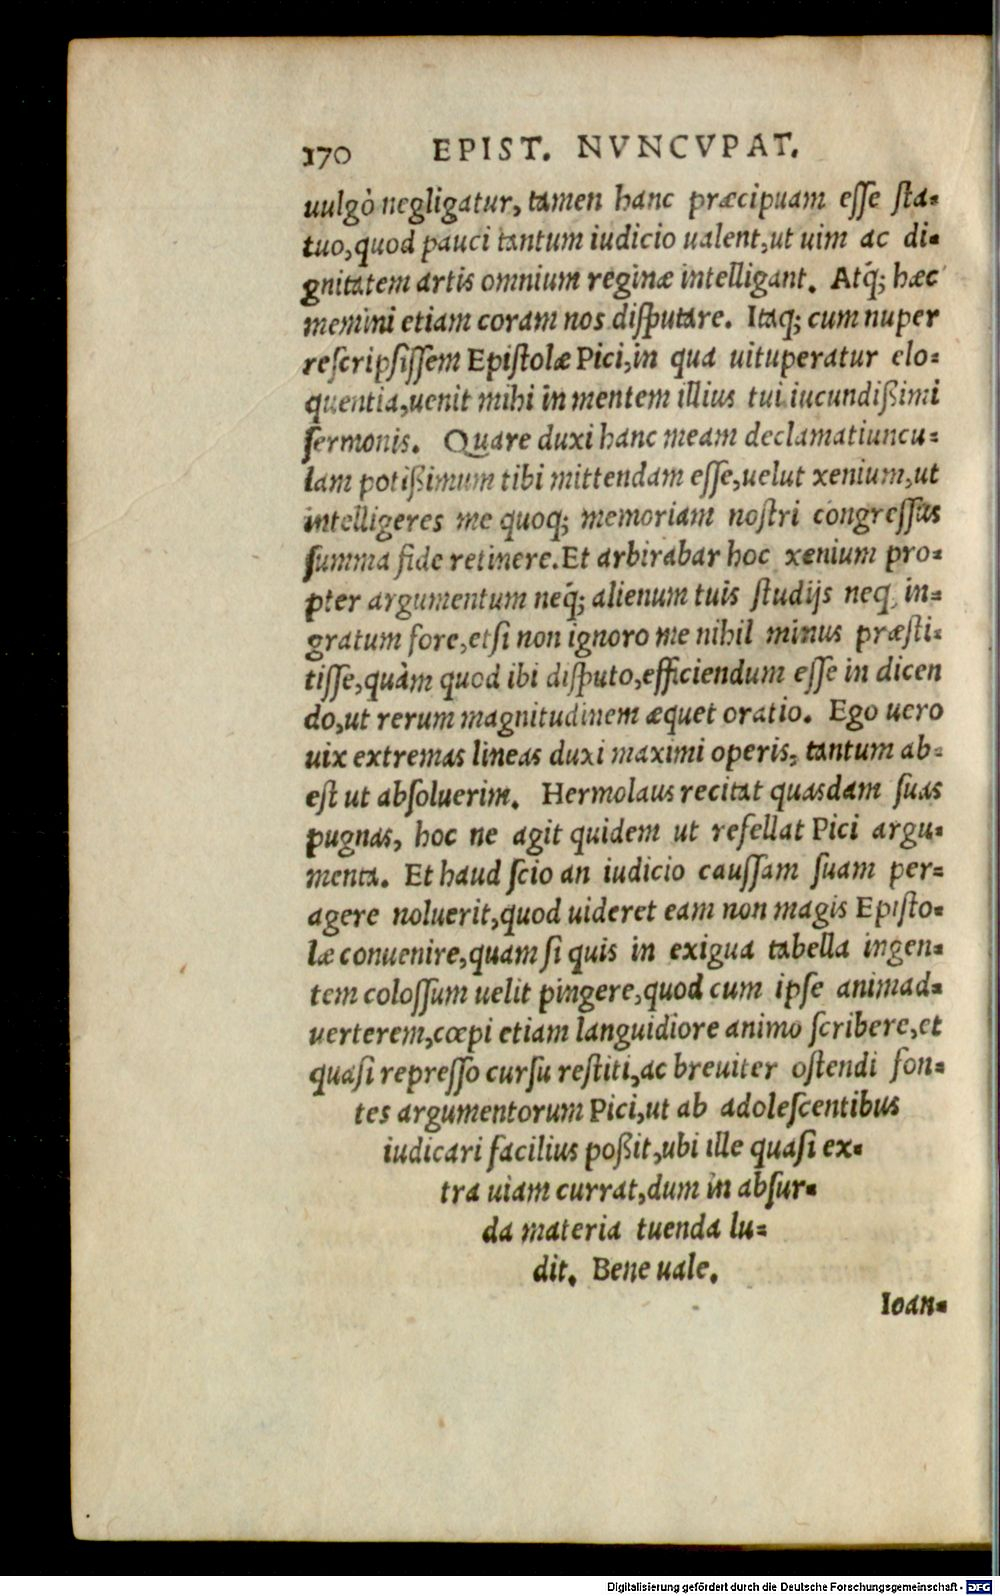 170 EPIST. NVNCVPAT.
uulgò negligatur, tamen hanc præcipuam esse sta-
tuo, quod pauci tantum iudicio ualent, ut uim ac di-
gnitatem artis omnium reginæ intelligant. Atq́; hæc
memini etiam coram nos disputare. Itaq; cum nuper
rescripsissem Epistolæ Pici, in qua uituperatur elo-
quentia, uenit mihi in mentem illius tui iucundißimi
sermonis. Quare duxi hanc meam declamatiuncu-
lam potißimum tibi mittendam esse, uelut xenium, ut
intelligeres me quoq; memoriam nostri congressus
summa fide retinere. Et arbirabar hoc xenium pro-
pter argumentum neq́; alienum tuis studijs neq; in-
gratum fore, etsi non ignoro me nihil minus præsti-
tisse, quàm quod ibi disputo, efficiendum esse in dicen
do, ut rerum magnitudinem æquet oratio. Ego uero
uix extremas lineas duxi maximi operis, tantum ab-
est ut absoluerim. Hermolaus recitat quasdam suas
pugnas, hoc ne agit quidem ut refellat Pici argu-
menta. Et haud scio an iudicio caussam suam per-
agere noluerit, quod uideret eam non magis Episto-
læ conuenire, quam si quis in exigua tabella ingen-
tem colossum uelit pingere, quod cum ipse animad-
verterem, cœpi etiam languidiore animo scribere, et
quasi represso cursu restiti, ac breuiter ostendi fon-
tes argumentorum Pici, ut ab adolescentibus
iudicari facilius poßit, ubi ille quasi ex-
tra uiam currat, dum in absur-
da materia tuenda lu-
dit. Bene uale.
Ioan-
Digitalisierung gefördert durch die Deutsche Forschungsgemeinschaft - DFG